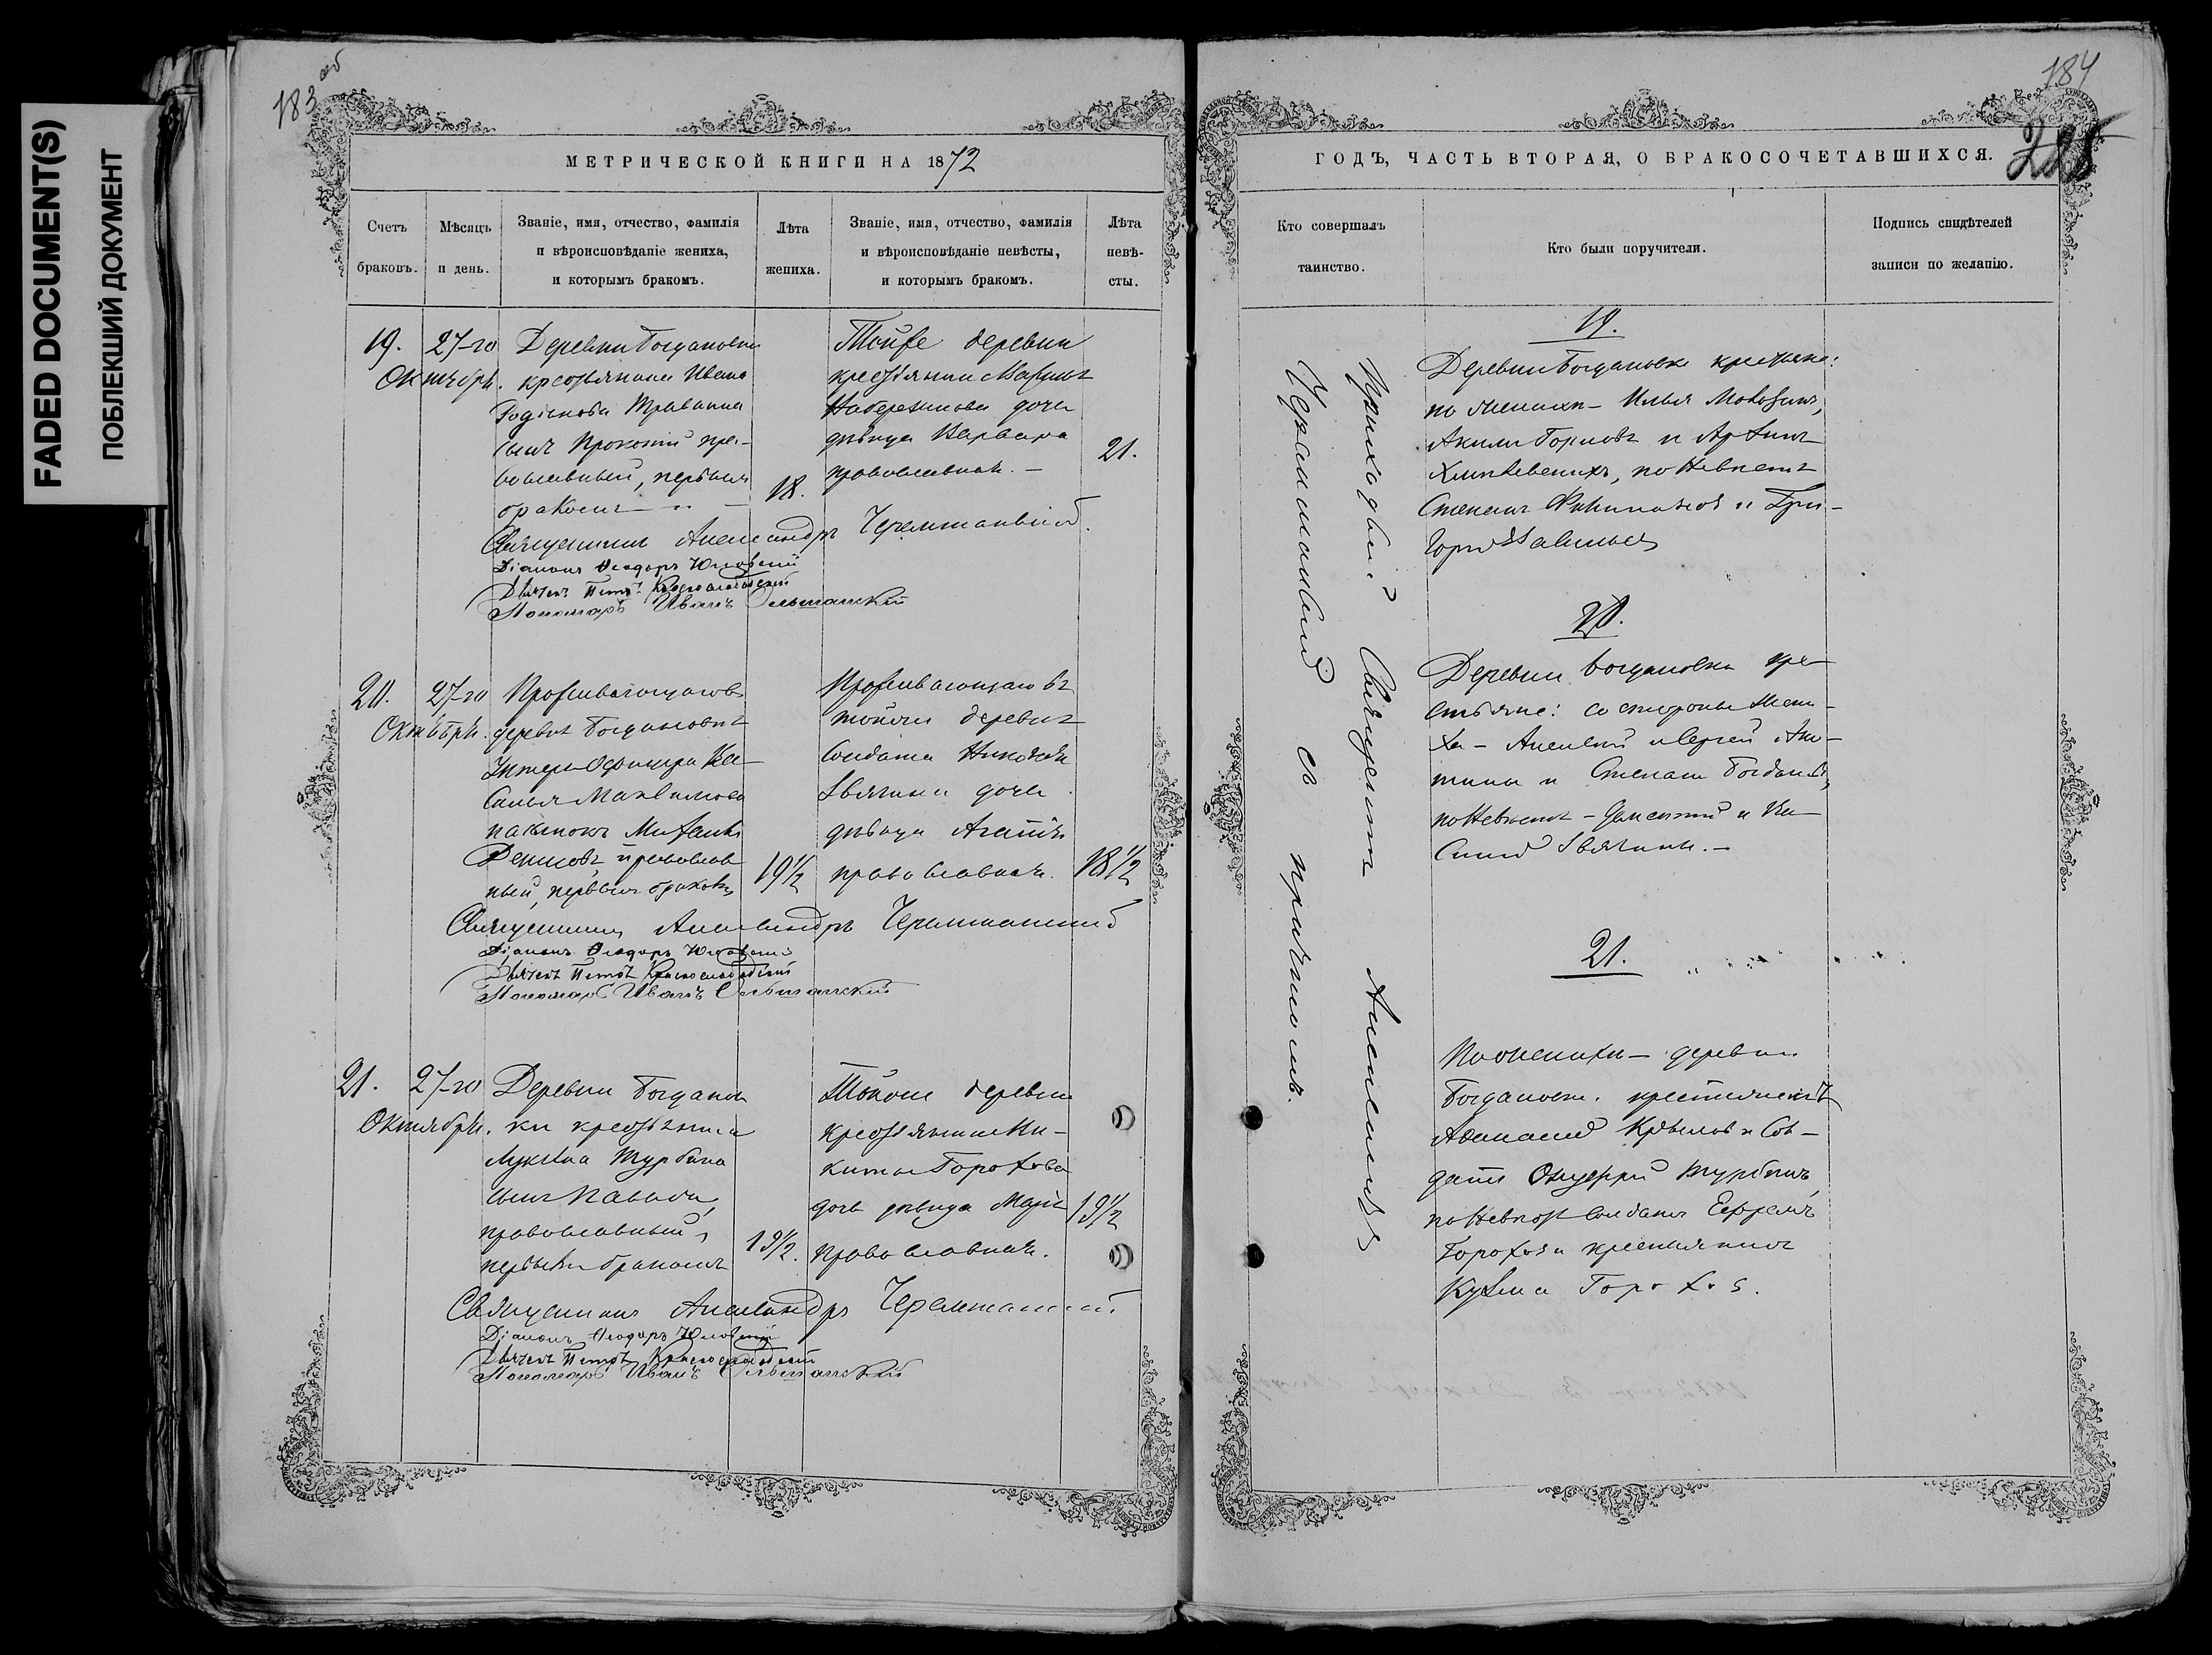 FADED DOCUMENT(S)
ПОБЛЕКШИЙ ДОКУМЕНТ
183 об
МЕТРИЧЕСКОЙ КНИГИ НА 1872
Счетъ браковъ.
Мѣсяцъ и день.
Званіе, имя, отчество, фамилія и вѣроисповѣданіе жениха, и которымъ бракомъ.
Лѣта жениха.
Званіе, имя, отчество, фамилія и вѣроисповѣданіе невѣсты, и которымъ бракомъ.
Лѣта невѣсты.
19.
27-го
Октября.
Деревни Богдановки
крестьянина Ивана
сынъ Прокопій пра-
вославный, первымъ
бракомъ
18.
Тойже деревни
крестьянина
дочь
дѣвица Варвара
православная.
21.
Священникъ Александръ Черемшанскій.
Діаконъ Ѳеодоръ
Дьячекъ Петръ Краснослободскій
Пономарь Иванъ Ольшанскій
20.
27-го
Октября.
Проживающаго въ
деревнѣ Богдановкѣ
Унтеръ-Офицера Ва-
силья Максимова
Денисовъ, православ
ный, первымъ бракомъ
19½
Проживающаго въ
тойже деревнѣ
Солдата Николая
Звягина дочь
дѣвица Агапія
православная.
18½
Священникъ Александръ Черемшанскій
Діаконъ Ѳеодоръ
Дьячекъ Петръ Краснослободскій
Пономарь Иванъ Ольшанскій
21.
27-го
Октября.
Деревни Богданов
ки крестьянина
Турбина
сынъ
православный,
первымъ бракомъ
19½.
Тойже деревни
крестьянина Ни-
киты Горохова
дочь дѣвица Марія
православная.
19½
Священникъ Александръ Черемшанскій
Діаконъ Ѳеодоръ
Дьячекъ Петръ Краснослободскій
Пономарь Иванъ Ольшанскій
184
ГОДЪ, ЧАСТЬ ВТОРАЯ, О БРАКОСОЧЕТАВШИХСЯ.
Кто совершалъ таинство.
Кто были поручители.
Подпись свидѣтелей записи по желанію.
Приходскій Священникъ Александръ
Черемшанскій съ причтомъ.
19.
Деревни Богдановки крестьяне:
по женихѣ - Илья
Акимъ Горловъ и
по невѣстѣ
Степанъ и Гри-
горій Савельевъ
20.
Деревни Богдановки кре-
стьяне: со стороны жени-
ха - Алексѣй и Сергей
и Степанъ Богдановъ,
по невѣстѣ - Дементій и Ва-
силій Звягины.
21.
По женихѣ - деревни
Богдановки крестьянинъ
Аѳанасій Крыловъ и Сол-
датъ Онуфрій Турбинъ,
по невѣстѣ Солдатъ Ефремъ
Гороховъ и крестьянинъ
Кузьма Гороховъ.